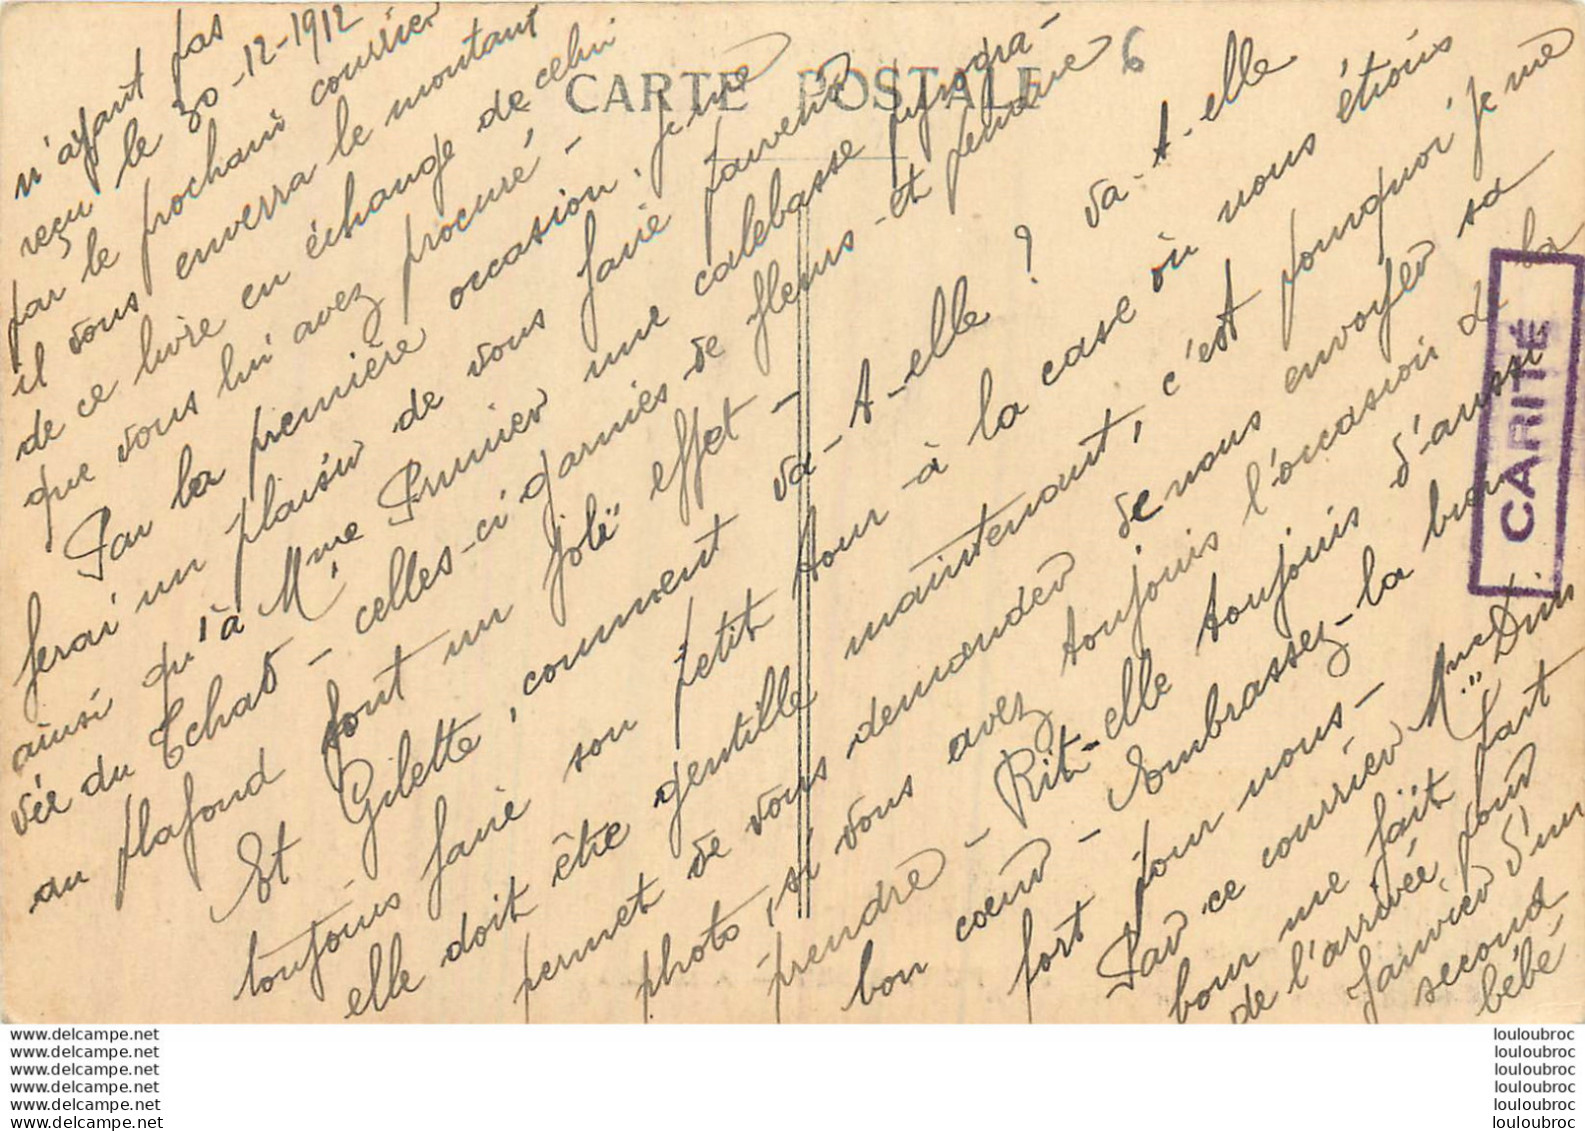 CARTE POSTALE
6
n'ayant pas
reçu le 30-12-1912
par le prochain courrier
il vous enverra le montant
de ce livre en échange de celui
que vous lui avez procuré -
Par la première occasion. Je me
ferai un plaisir de vous faire parvenir
ainsi qu'à Mme Prunier une calebasse pyrogra-
vée du Tchad - celles-ci garnies de fleurs - et pendue
au plafond font un joli effet -
Et Gilette, comment va-t-elle ? va-t-elle
toujours faire son petit tour à la case où nous étions
elle doit être gentille maintenant, c'est pourquoi je me
permet de vous demander de nous envoyer sa
photo, si vous avez toujours l'occasion de la
prendre - Rit-elle toujours d'aussi
bon coeur - Embrassez-la bien
fort pour nous -
Par ce courrier Mme
bour me fait part
de l'arrivée pour
Janvier d'un
second
bébé
CARITÉ
www.delcampe.net
www.delcampe.net
www.delcampe.net
www.delcampe.net
www.delcampe.net
www.delcampe.net
louloubroc
louloubroc
louloubroc
louloubroc
louloubroc
louloubroc